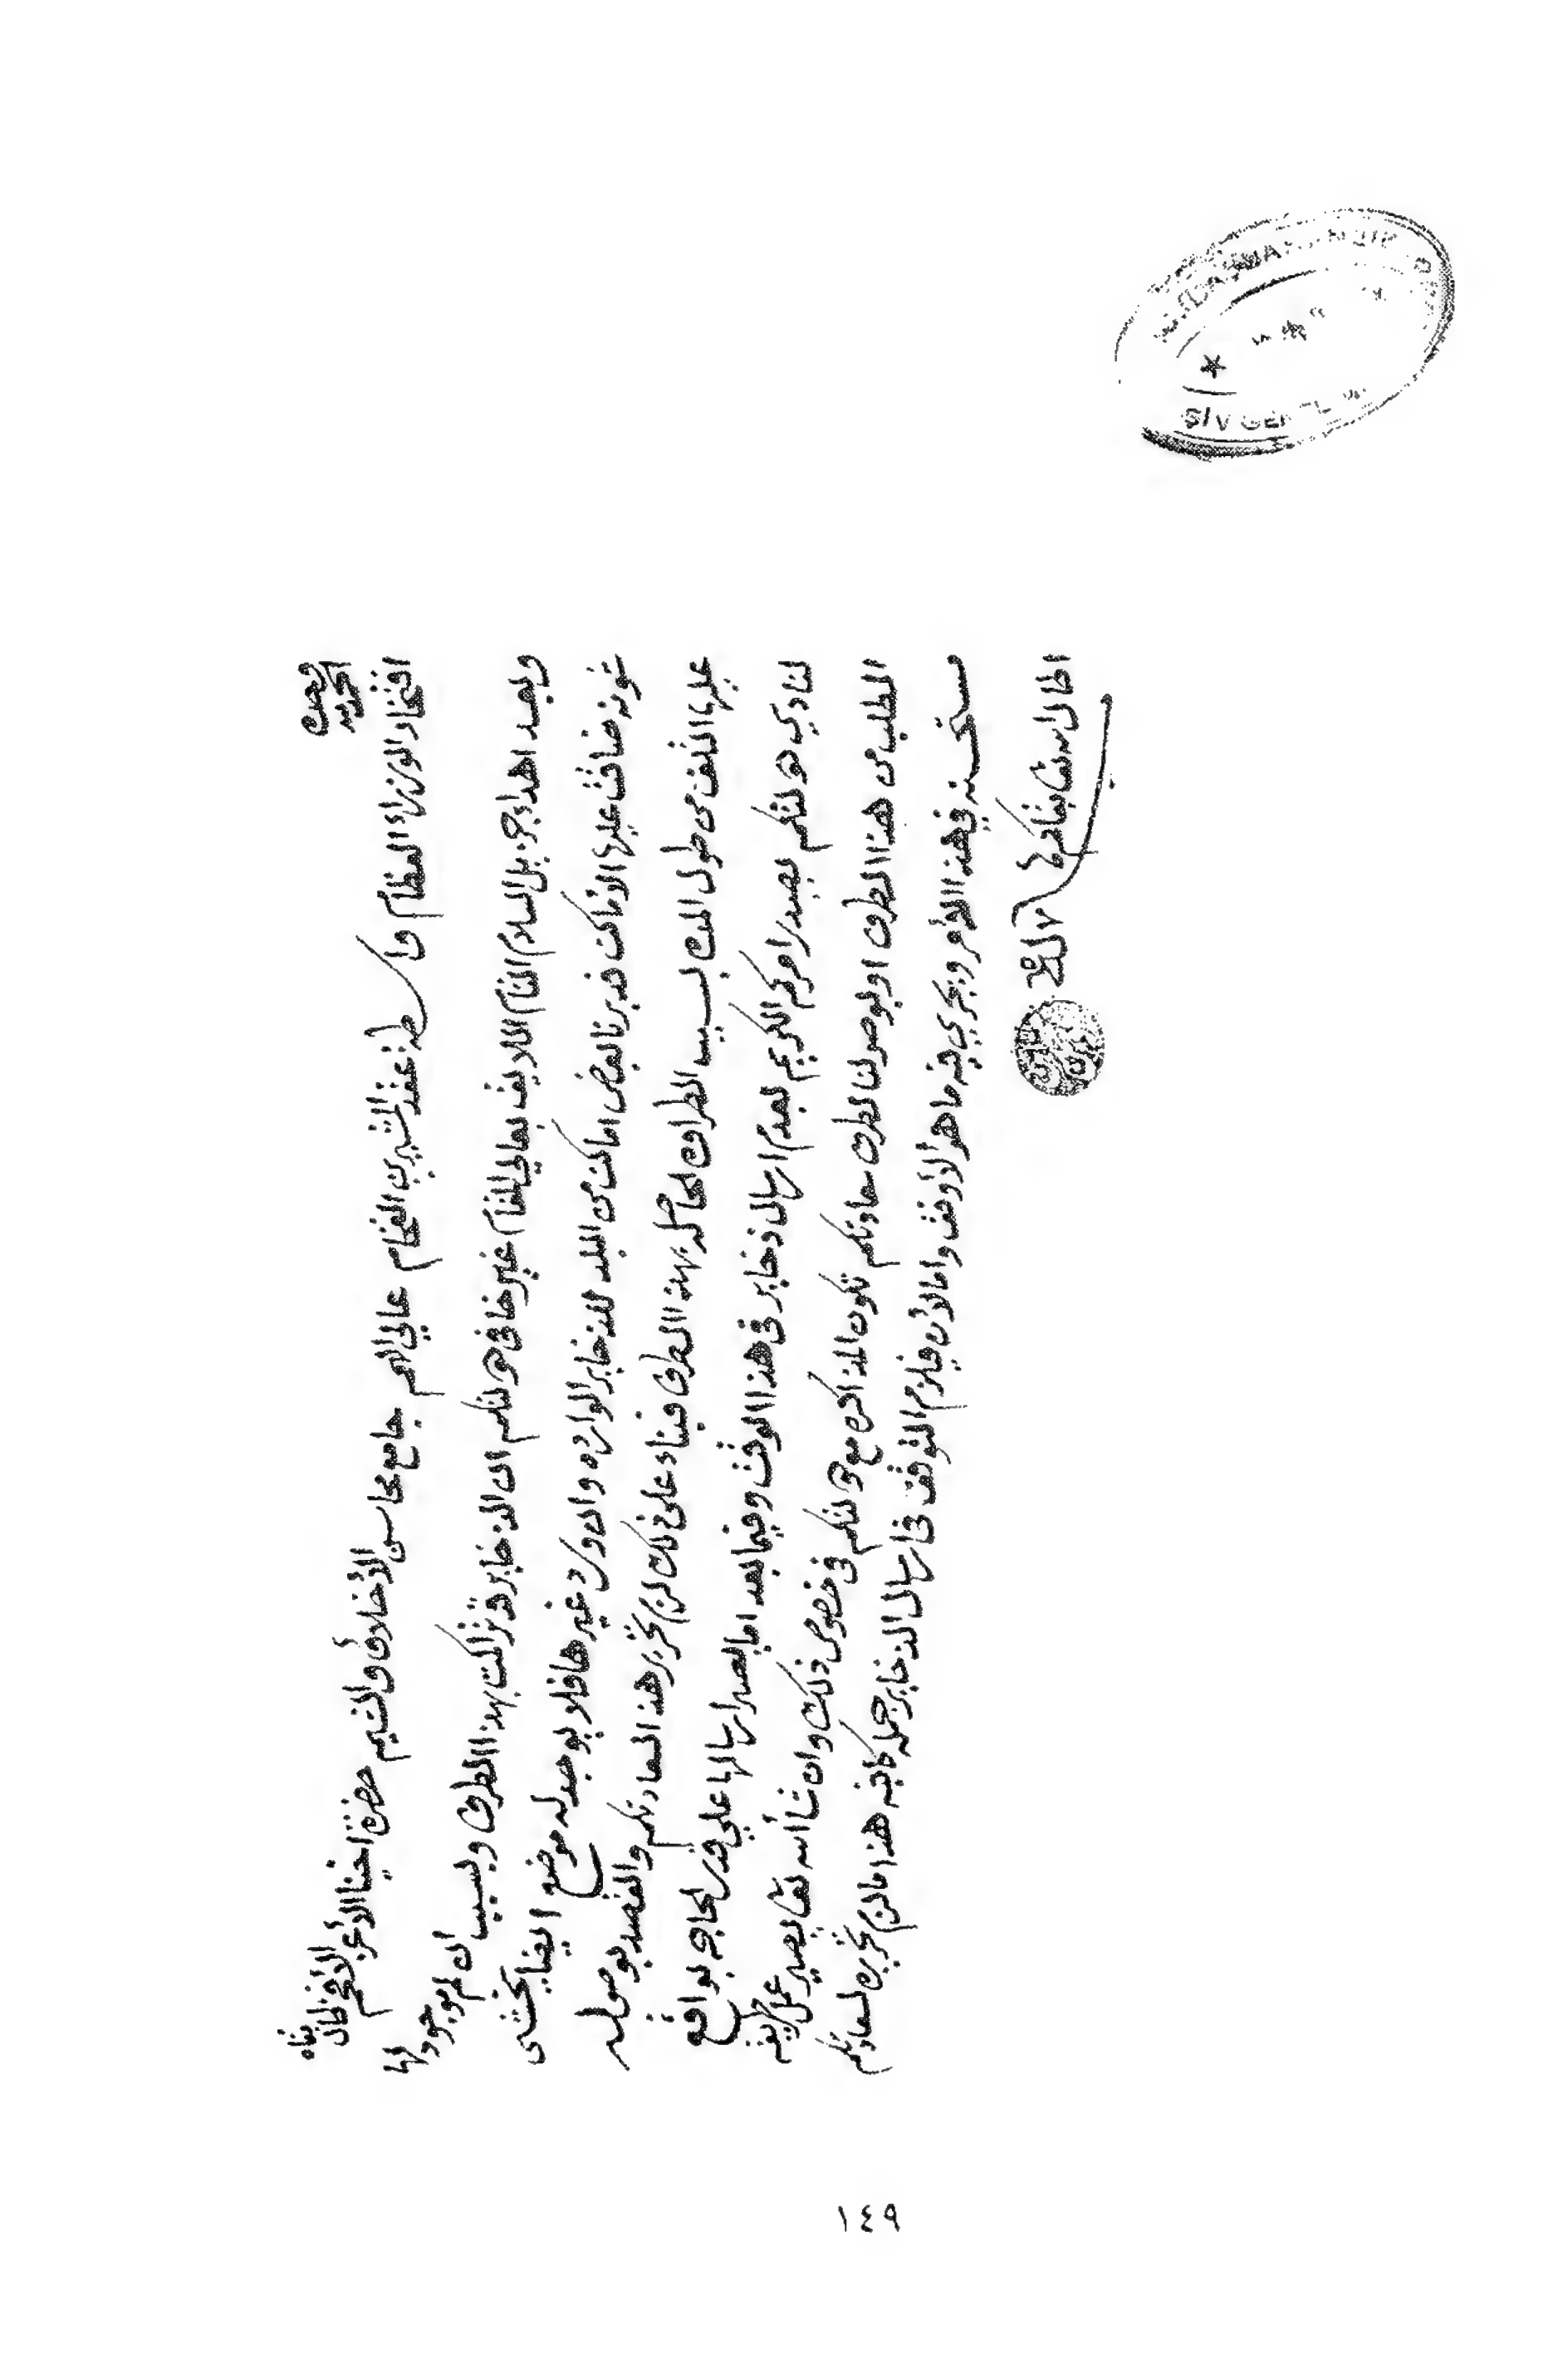 الحمد لله وحده
افتخار الوزراء العظام واسطة عقد المشيرين الفخام عالي الهمم جامع محاسن الأخلاق والشيم حضرة اخينا الأعز الأفخم
وبعد اهداء جزيل السلام التام اللايق بعالي المقام غير خافي دولتكم ان الذخاير قد تراكمت بهذا الطرف وبسبب ان لم موجود لها
شونه ضاقت عليها الاماكن قد برنا بعض اماكن من البلد للذخاير الوارده وان ورد غيرها فلا يوجد له موضع ايضا يخشى
عليها التلف من طول المده بسبب الطراوه الحاصله بهذا الطرف فبناء على ذلك لزم تحرير هذا لسعادتكم والقصد بوصوله
لنادي دولتكم يصدر امركم الكريم بعدم ارسال ذخاير في هذا الوقت وفيما بعد اما يصير ارسالها علي قدر الحاجه بواقع
الطلب من هذا الطرف او بوصولنا لطرف سعادتكم تكون المذاكره مع دولتكم في خصوص ذلك وان شا الله تعا يصير عمل طريقه
مستحسنه في هذا الأمر ويجري فيه ما هو الأوفق واما الأن فيلزم التوقف في ارسال الذخاير جمله كافيه هذا ما لزم تحريره لسعادتكم
اطال الله تعا بقاكم
١٤٩